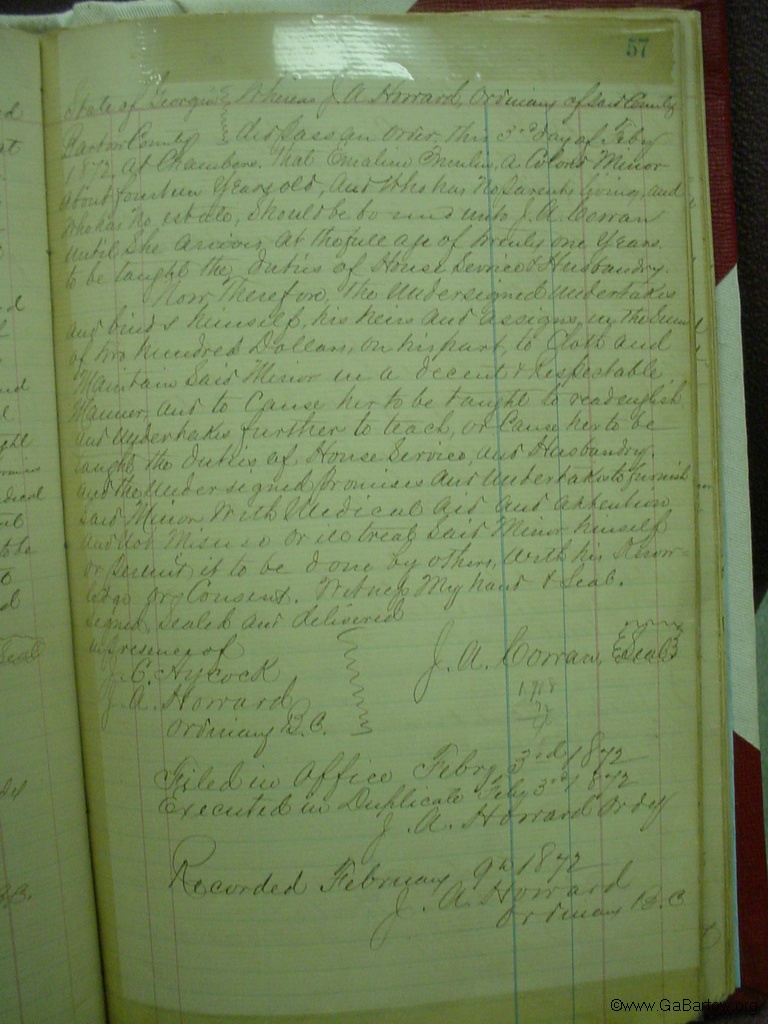 57
State of Georgia Whereas J. A. Howard, Ordinary of said County
Bartow County did pass an order, this 3rd day of Feby
1872, At Chambers, that Emaline, A Colored Minor
about fourteen Years old, and who has no parents living, and
who has no estate, should be bound unto J. A.
until She arrives, at the full age of twenty one Years
to be taught the duties of House Service & Husbandry.
Now, Therefore, the Undersigned undertakes
and binds himself, his heirs and assigns, in the Sum
of two hundred Dollars, on his part, to Cloth and
Maintain Said Minor in a decent & respectable
Manner, and to Cause her to be taught to read english
and Undertakes further to teach, or Cause her to be
taught the duties of House Service, and Husbandry.
and the Undersigned promises and undertakes to furnish
Said Minor With Medical Aid and Attention
and not Misuse or ill treat Said Minor himself
or permit it to be done by others, With his Know-
ledge or Consent. Witness My hand & Seal.
Signed Sealed and delivered
in presence of
J. A. Seal
J. C. Aycock
J. A. Howard
Ordinary B.C.
Filed in Office Febry 3rd 1872
Executed in Duplicate Feby 3rd 1872
J. A. Howard Ordy
Recorded February 9th 1872
J. A. Howard
Ordinary B. C
©www.GaBartow.org